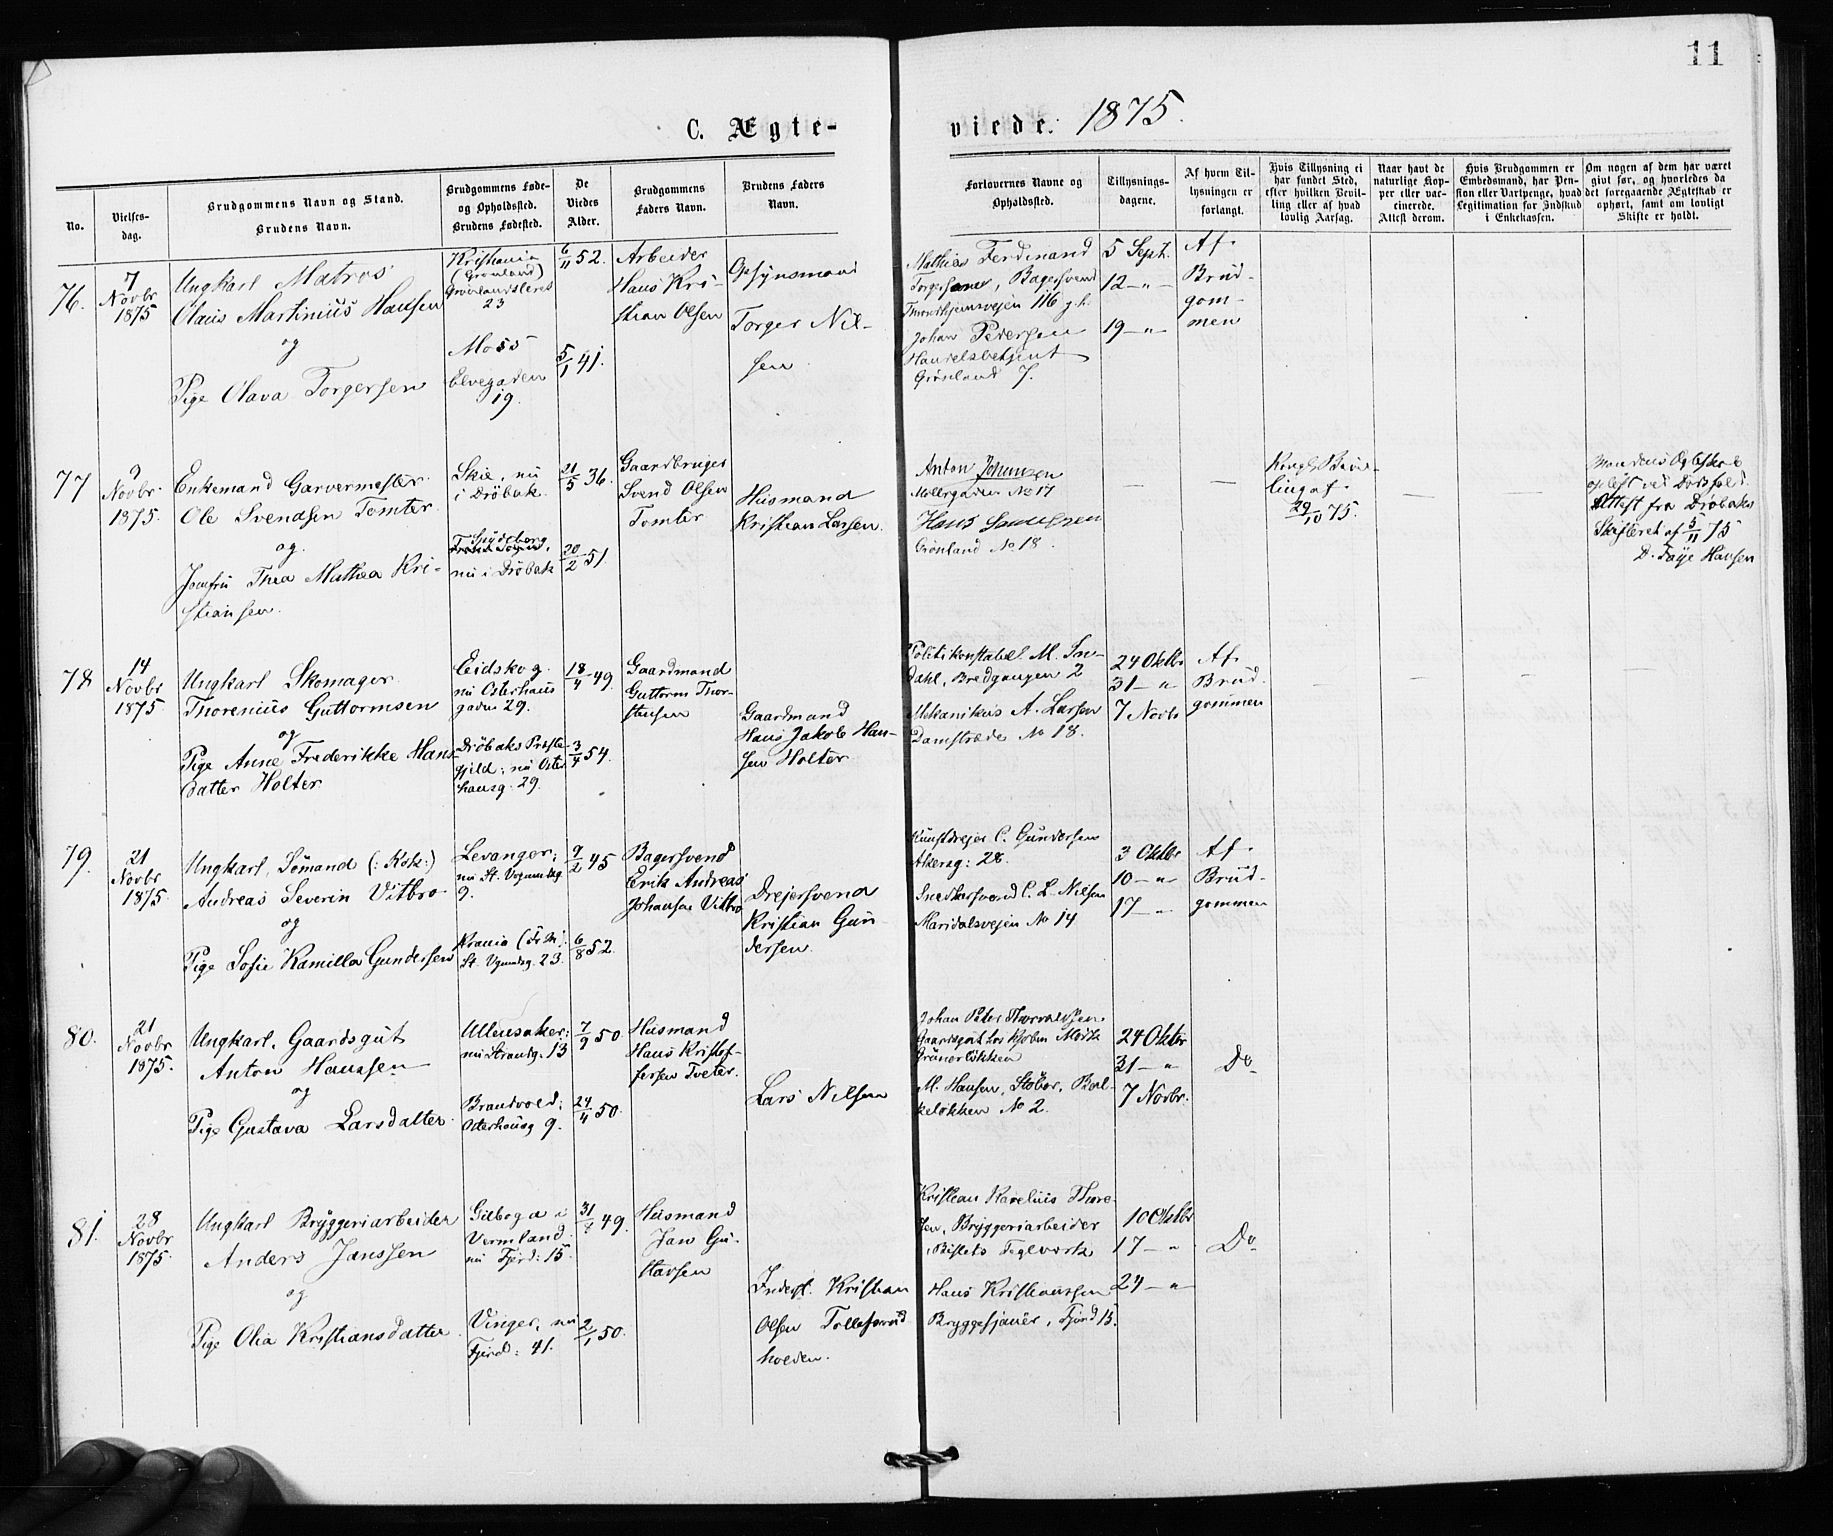 11
C. Ægte-
viede. 1875.
No.
Vielses-
dag.
Brudgommens Navn og Stand.
Brudens Navn.
Brudgommens Føde-
og Opholdssted.
Brudens Fødested.
De
Viedes
Alder.
Brudgommens
Faders Navn.
Brudens Faders
Navn.
Forlovernes Navne og
Opholdssted.
Tillysnings-
dagene.
Af hvem Til-
lysningen er
forlangt.
Hvis Tillysning ei
har fundet Sted,
efter hvilken Bevil-
ling eller af hvad
lovlig Aarsag.
Naar havt de
naturlige Kop-
per eller vac-
cinerede.
Attest derom.
Hvis Brudgommen er
Embedsmand, har Pen-
sion eller Vartpenge, hvad
Legitimation for Indskud
i Enkekassen.
Om nogen af dem har været
gift før, og hvorledes da
det foregaaende Ægteskab er
ophørt, samt om lovligt
Skifte er holdt.
76.
7
Novbr
1875
Ungkarl Matros
Olaus Martinius Hansen
og
Pige Olava Torgersen
Kristiania
(Grønland)
Grønlandsleret
23
Moss
Elvegaden
19.
6/11 52.
5/1 41.
Arbeider
Hans Kri-
stian Olsen
Opsynsmand
Torger Nil-
sen
Mathias Ferdinand
Torgersen, Bagersvend
Trondhjemsvejen 116 g.h.
Johan Pedersen
Handelsbetjent
Grønland 7.
5 Sept.
12 — "
19 — "
Af
Brud-
gom-
men
77
9
Novbr
1875.
Enkemand Garvermester
Ole Svendsen Tomter
og
Jomfru Thea Mathea Kri-
stiansen.
Skie, nu
i Drøbak
Spydeberg
nu i Drøbak
21/5 36.
20/2 51.
Gaardbruger
Svend Olsen
Tomter
Husmand
Kristian Larsen.
Anton Johansen
Møllergaden No 17
Hans Samuelsen
Grønland No 18.
Kongl. Bevil-
ling af
29/10 75.
Mandens Ægteskab
opløst ved Dødsfald.
Attest fra Drøbaks
Skifteret af 5/11 75
D. Faye Hansen
78
14
Novbr
1875.
Ungkarl Skomager
Thorenius Guttormsen
og
Pige Anne Frederikke Hans-
datter Holter
Eidskog
nu Osterhaus
gaden 29.
Drøbaks Præste-
gjeld; nu Oster
hausg. 29.
18/4 49.
3/4 54.
Gaardmand
Guttorm Thor-
stensen
Gaardmand
Hans Jakob Han-
sen Holter
Politikonstabel M. Sne-
dahl, Bredgangen 2
Mekanikus A. Larsen
Damstræde No 18.
24 Oktbr
31 — "
7 Novb
Af
Brud-
gommen
79.
21
Novbr
1875.
Ungkarl, Sømand (: Kok:)
Andreas Severin Vitbro
og
Pige Sofie Kamilla Gundersen
Levanger;
nu St. Vognmdsg
9.
Krania
St. Vgnmdsg. 23.
9/2 45
6/8 52.
Bagersvend
Erik Andreas
Johansen Vitbro
Drejersvend
Kristian Gun-
dersen.
Kunstdrejer C. Gundersen
Akersg: 28.
Snedkersvend C. L. Nilsen
Maridalsvejen No 14
3 Oktbr
10 — "
17 — "
Af
Brud-
gommen
80.
21
Novbr
1875.
Ungkarl, Gaardsgut
Anton Hanssen
og
Pige Gustava Larsdatter
Ullensaker;
nu Strandg. 13
Brandvold;
Osterhausg 9.
7/9 50
24/4 50.
Husmand
Hans Kristof-
fersen Tveter.
Lars Nilsen
Johan Peter Thorvaldsen
Gaardsgut hos Kjøbm Mørk
Grünerløkken
M. Hansen, Støber, Bal-
keløkken No 2.
24 Oktbr
31 — "
7 Novbr.
Do
81.
28
Novbr
1875.
Ungkarl Bryggeriarbeider
Anders Janssen
og
Pige Olia Kristiansdatter
Gilboga i
Vermland
nu Fjerd: 15.
Vinger, nu
Fjerd: 41.
31/8 49.
2/1 50.
Husmand
Jan Gu-
stavsen
Inderst. Kristian
Olsen Tollefsrud
holden.
Kristian Karelius Thore-
sen, Bryggeriarbeider
Bislets Teglverk
Hans Kristianssen
Bryggesjauer, Fjerd 15.
10 Oktbr
17 — "
24 — "
Do